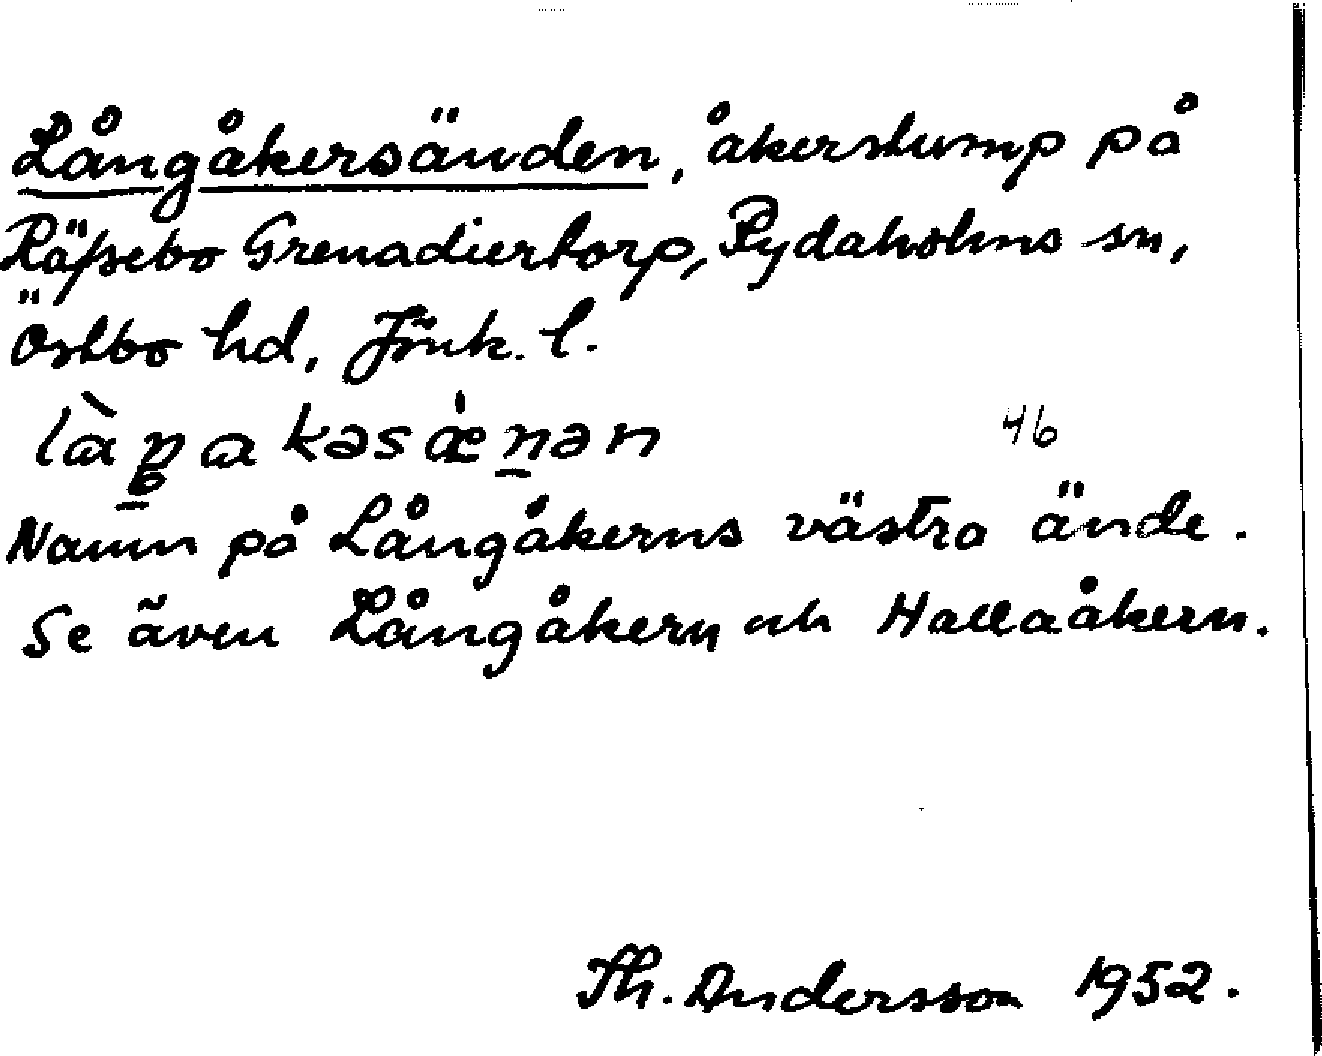 Långåkersänden, åkerstump på
Räpsebo Grenadiertorp, Rydaholms sn,
Östbo hd, Jönk. l.
46
Namn på Långåkerns västra ände.
Se även Långåkern och Hallaåkern.
Th. Andersson 1952.